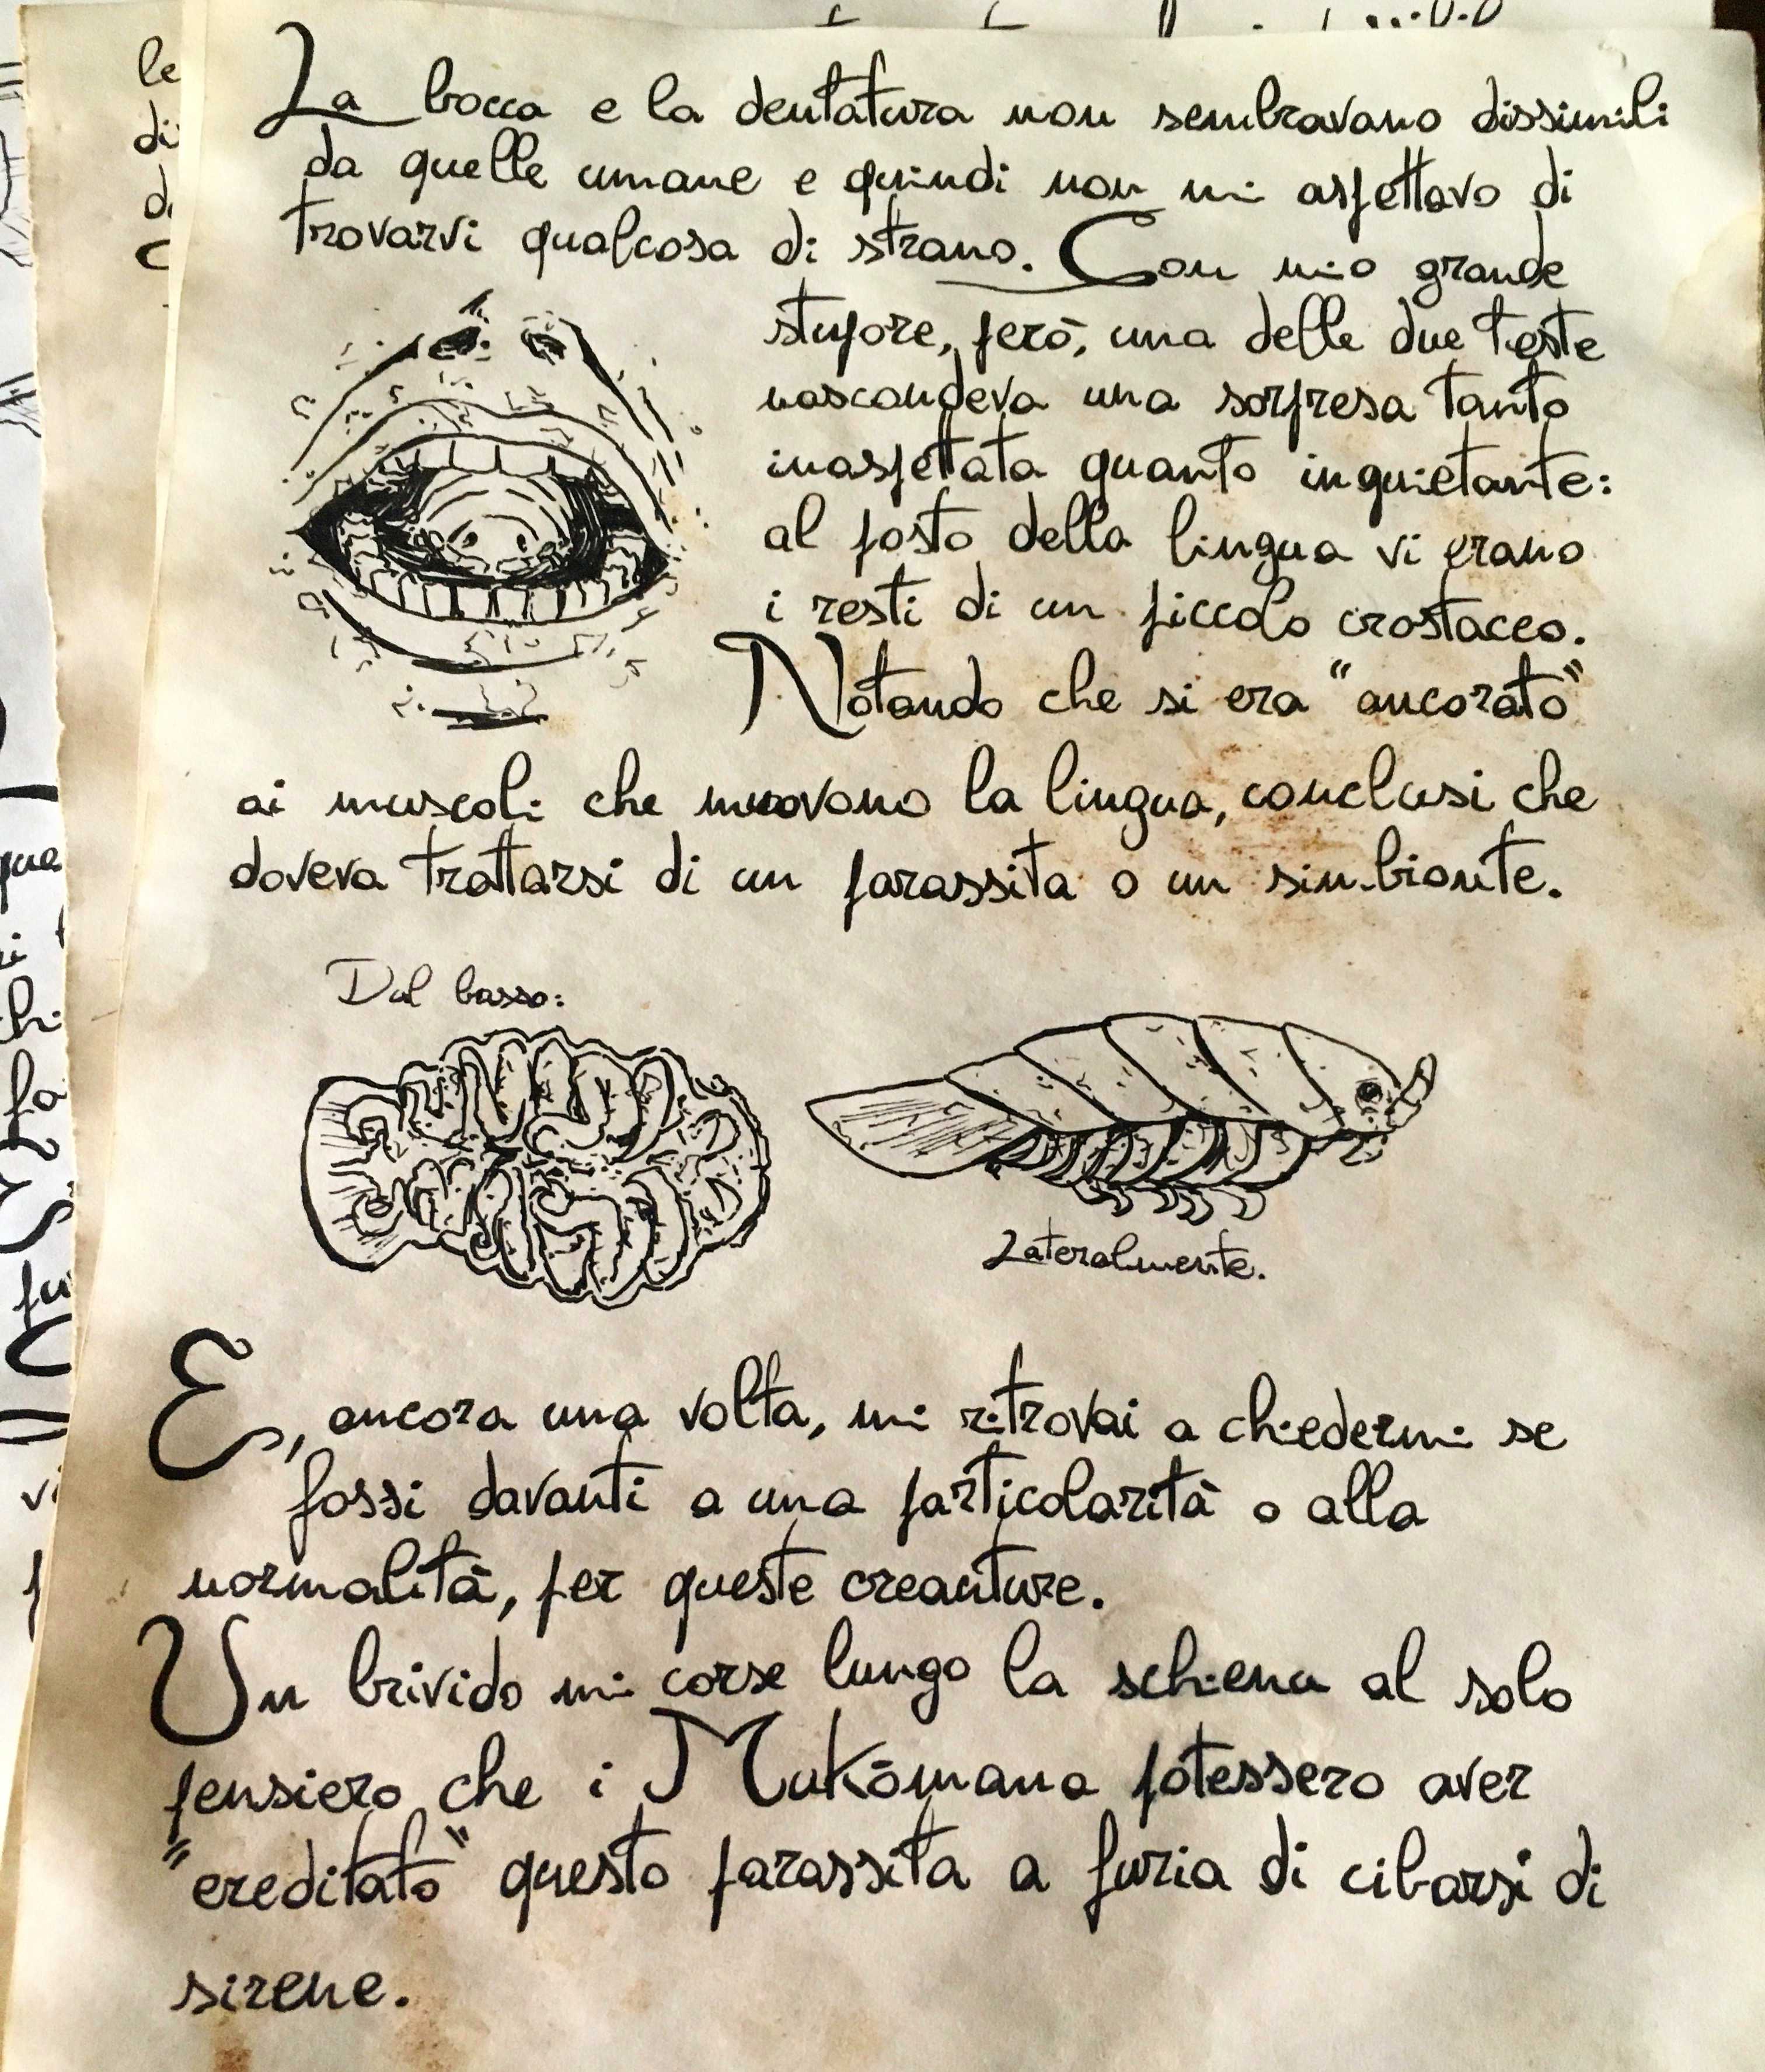 La bocca e la dentatura non sembravano dissimili
da quelle umane e quindi non mi aspettavo di
trovarvi qualcosa di strano. Con mio grande
stupore, però, una delle due teste
nascondeva una sorpresa tanto
inaspettata quanto inquietante:
al posto della lingua vi erano
i resti di un piccolo crostaceo.
Notando che si era "ancorato"
ai muscoli che muovono la lingua, conclusi che
doveva trattarsi di un parassita o un simbionte.
Dal basso:
Lateralmente.
E, ancora una volta, mi ritrovai a chiedermi se
fossi davanti a una particolarità o alla
normalità, per queste creauture.
Un brivido mi corse lungo la schiena al solo
pensiero che i Mukōmana potessero aver
"ereditato" questo parassita a furia di cibarsi di
sirene.